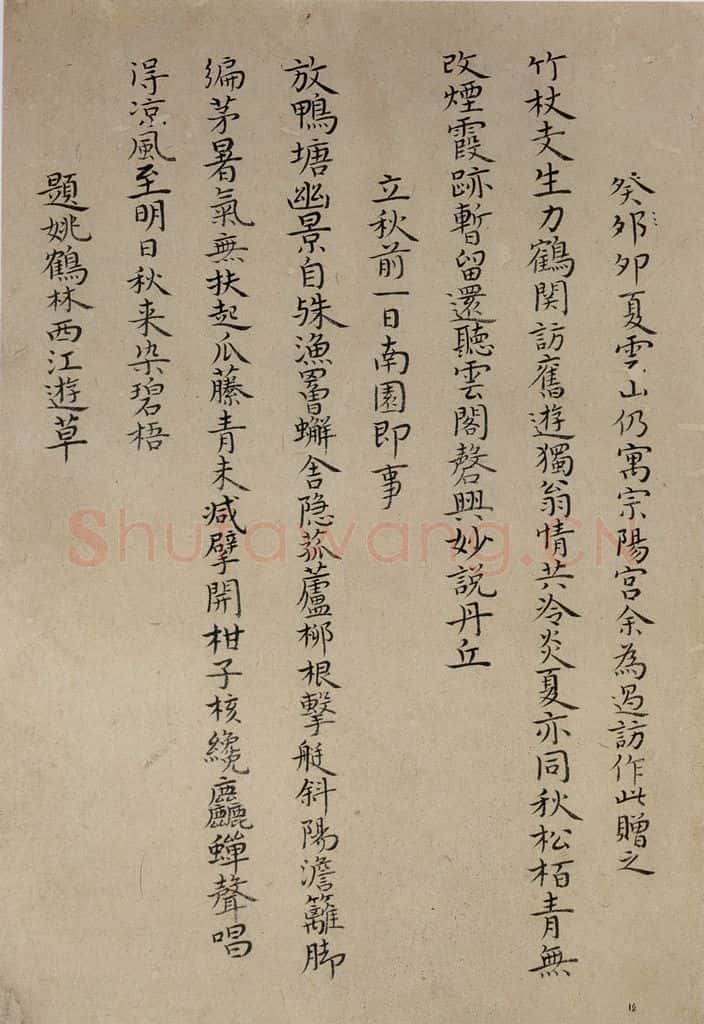 癸邜卯夏雲山仍寓宗陽宮余為過訪作此贈之
竹杖支生力鶴関訪舊遊獨翁情共冷炎夏亦同秋松栢青無
改煙霞跡暫留還聽雲閣磬興妙說丹丘
立秋前一日南園即事
放鴨塘幽景自殊漁罾蠏舍隐菰蘆柳根擊艇斜陽澹籬脚
編茅暑氣無扶起瓜藤青未減擘開柑子核纔麤蟬聲唱
淂凉風至明日秋来染碧梧
題姚鶴林西江遊草
Shufawang.CN